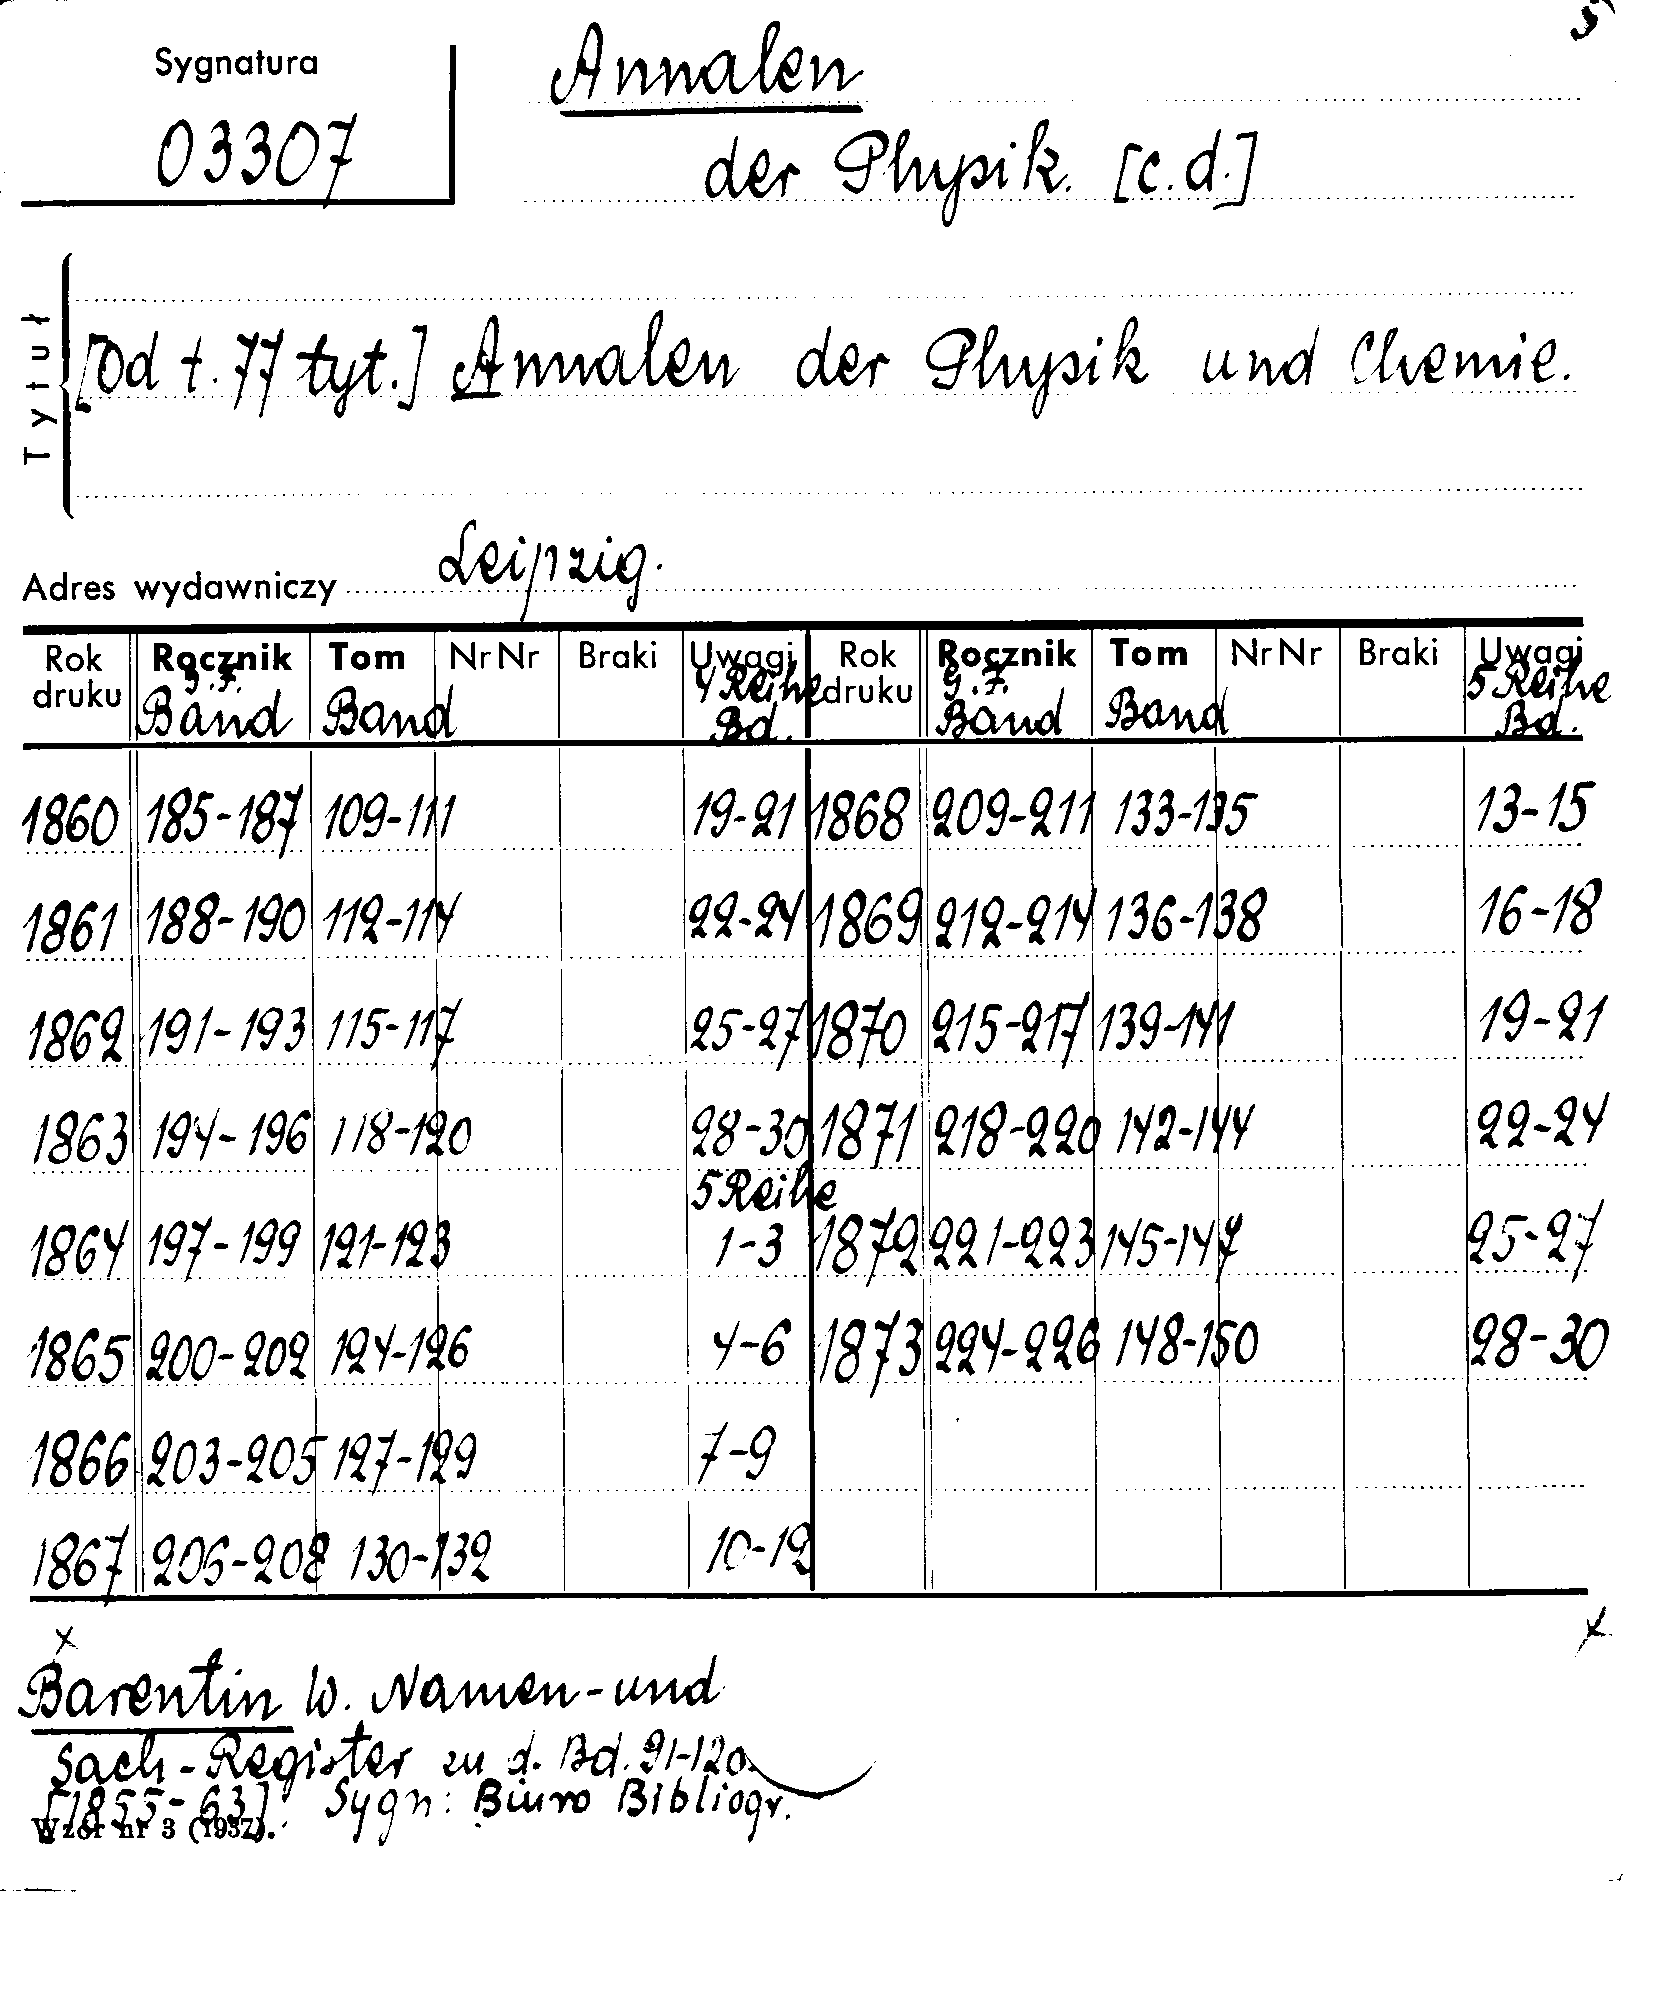 5
Sygnatura
03307
Annalen
der Physik. [c.d.]
Tytuł
[Od t. 77 tyt.] Annalen der Physik und Chemie.
Adres wydawniczy Leipzig.
Rok druku Rocznik g.F. Band Tom Band Nr Nr Braki Uwagi 4 Reihe Bd. Rok druku Rocznik g.F. Band Tom Band Nr Nr Braki Uwagi 5 Reihe Bd.
1860 185-187 109-111 19-21 1868 209-211 133-135 13-15
1861 188-190 112-114 22-24 1869 212-214 136-138 16-18
1862 191-193 115-117 25-27 1870 215-217 139-141 19-21
1863 194-196 118-120 28-30 1871 218-220 142-144 22-24
5 Reihe
1864 197-199 121-123 1-3 1872 221-223 145-147 25-27
1865 200-202 124-126 4-6 1873 224-226 148-150 28-30
1866 203-205 127-129 7-9
1867 206-208 130-132 10-12
x x
Barentin W. Namen-und
Sach-Register zu d. Bd. 91-120.
[1855-63]. Sygn: Biuro Bibliogr.
Wzór nr 3 (1937).